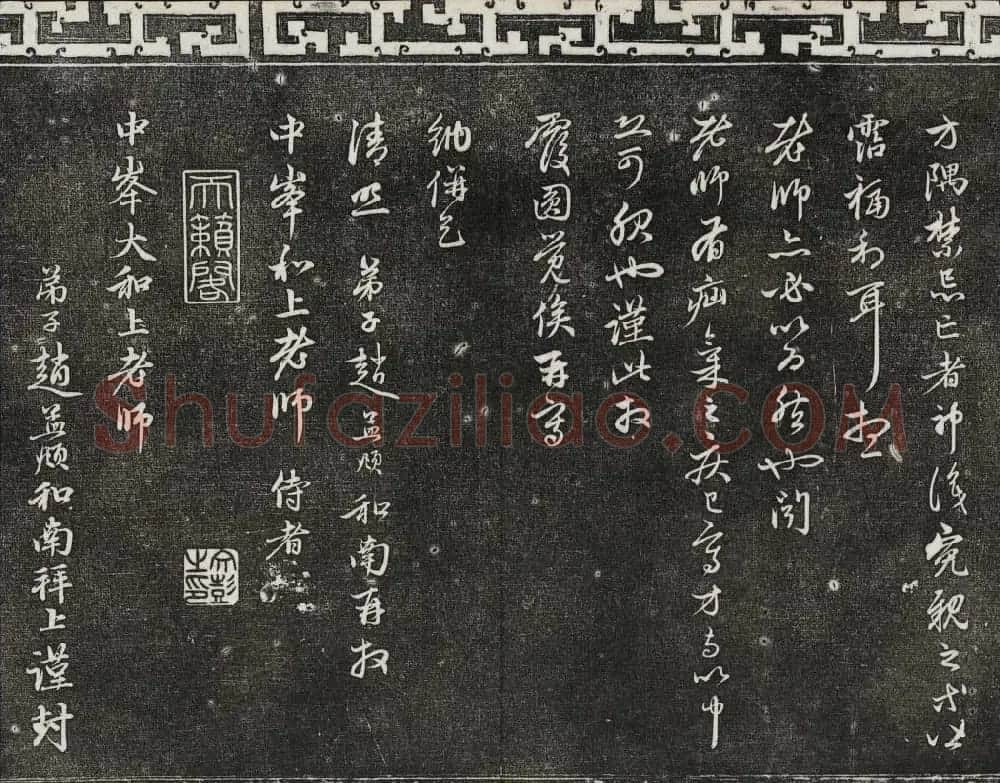 方隅禁忌亡者神識冤親之等
霑福利耳想
老師亦必以為然也聞
老師有疝氣之疾已寫方与以中
可服也謹此拜
覆圓覺俟再寫
納併乞
清照 弟子趙孟頫和南再拜
中峯和上老師 侍者
天籟閣
文彭之印
中峯大和上老師
弟子趙孟頫和南拜上謹封
Shufaziliao.COM